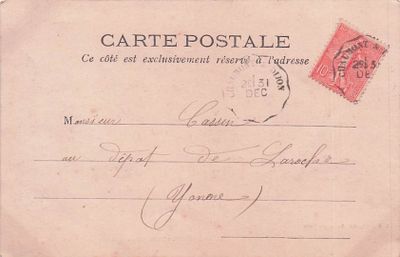 CARTE POSTALE
Ce côté est exclusivement réservé à l'adresse
10
CHAUMONT
31
DEC
Monsieur Cassin
au dépot de Laroche
(Yonne)